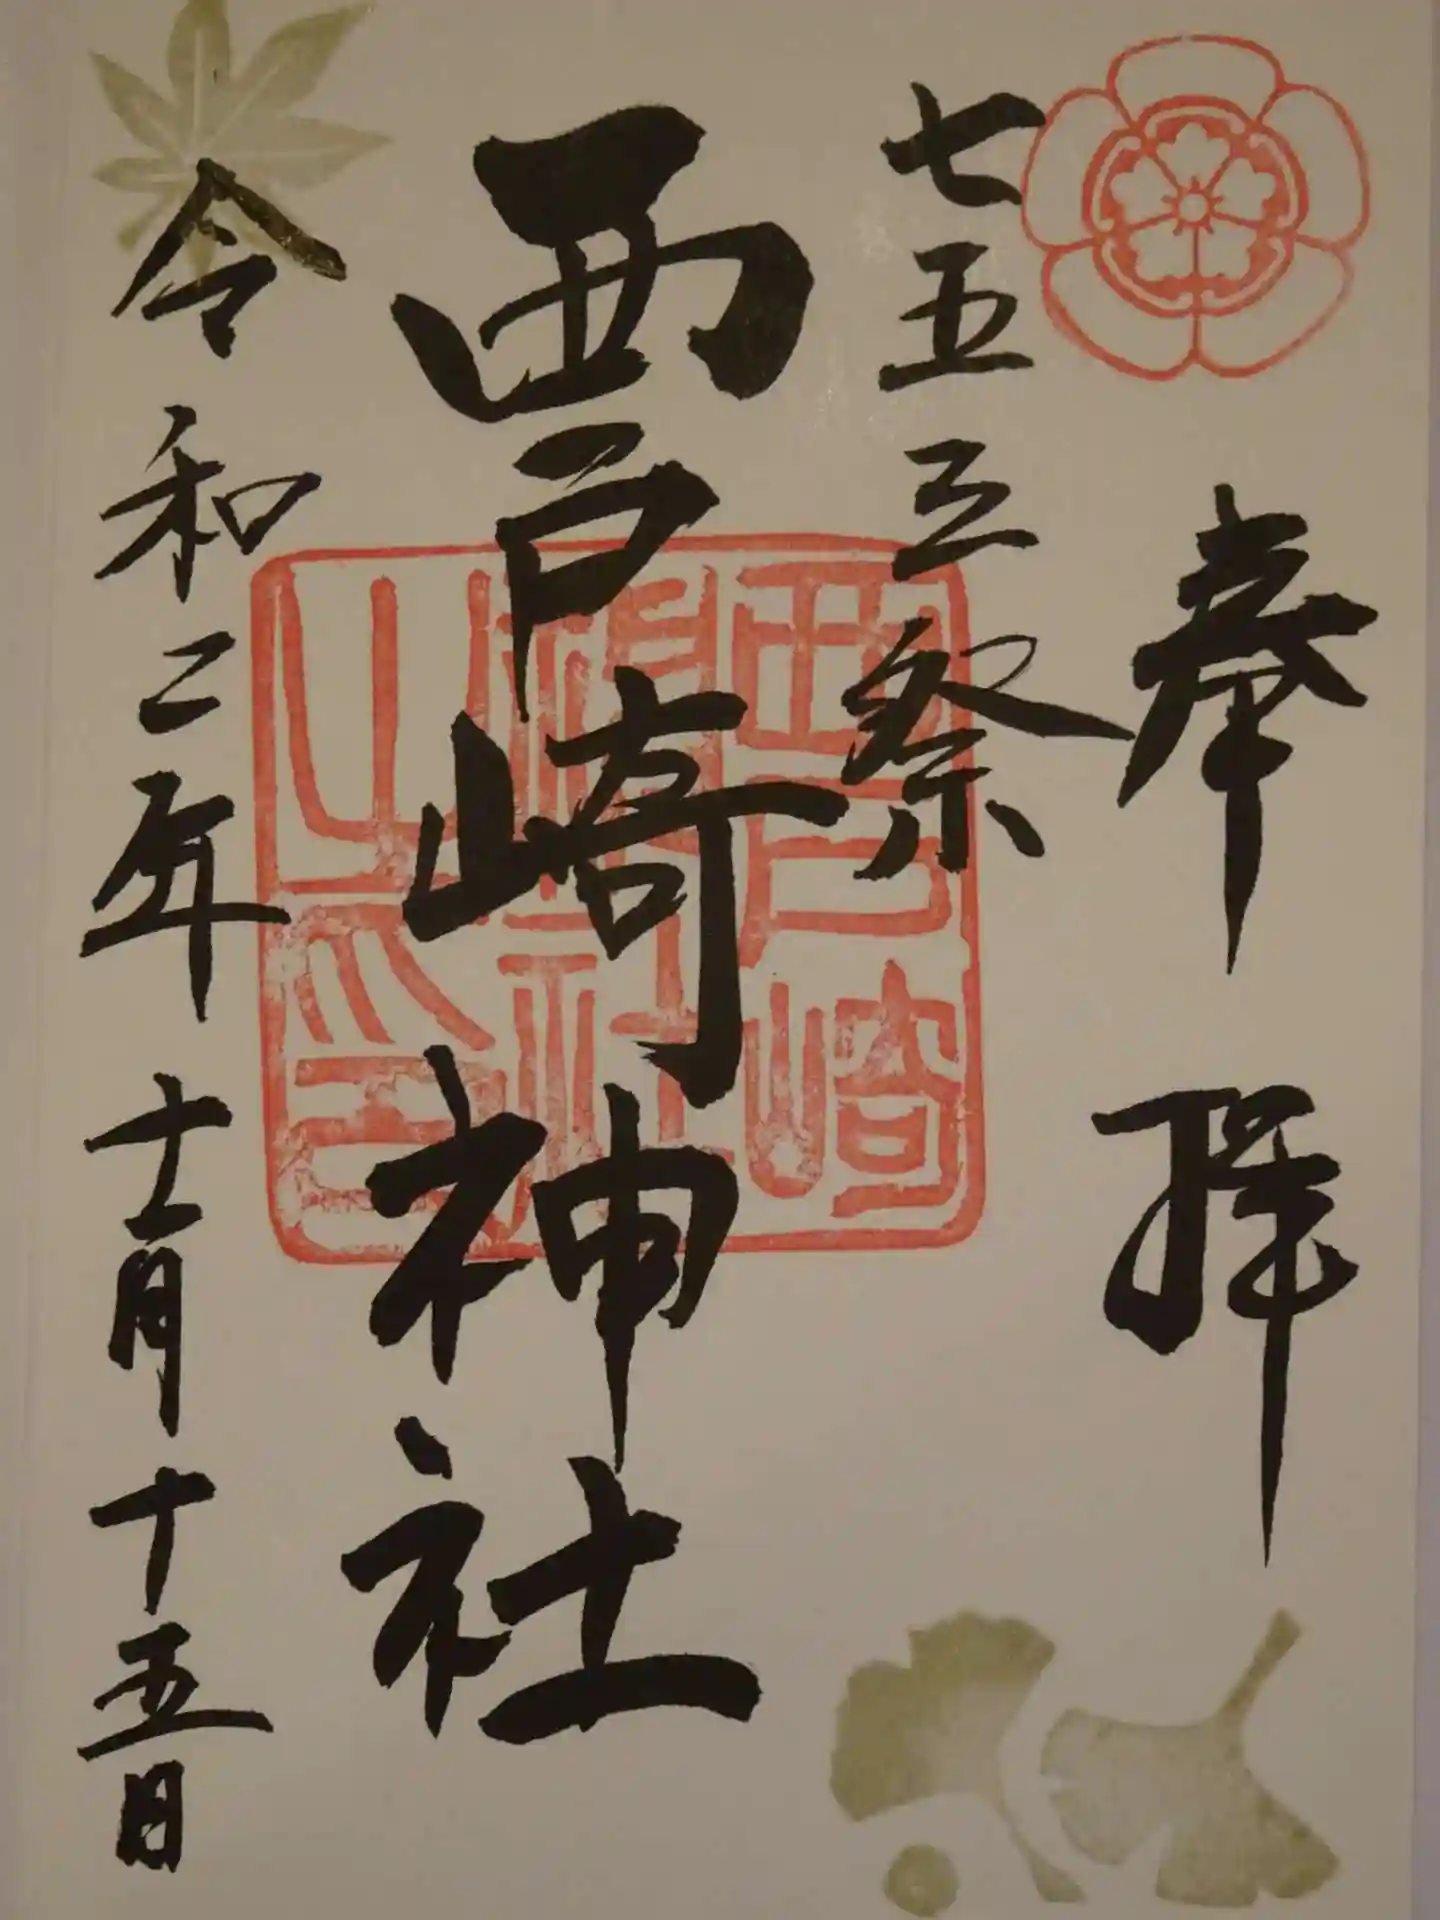 奉拝
七五三祭
西戸崎神社
西戸崎神社之印
令和二年十一月十五日